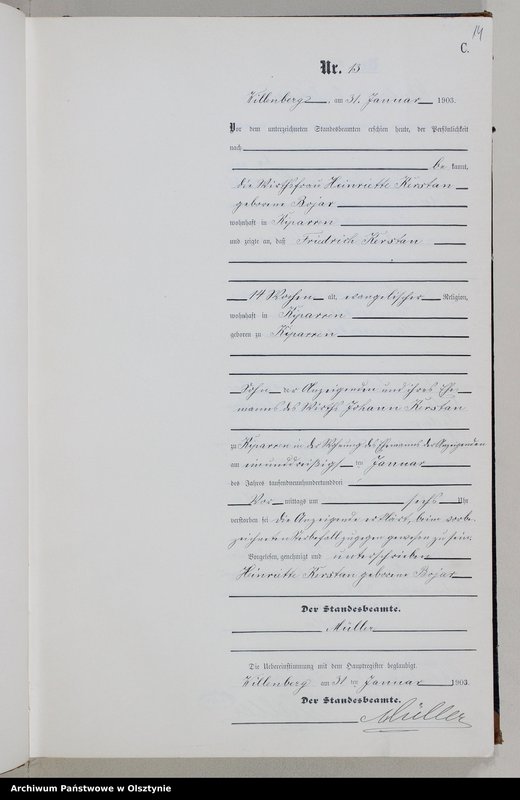 14
C.
Nr. 13
Willenberg, am 31. Januar 1903.
Vor dem unterzeichneten Standesbeamten erschien heute, der Persönlichkeit
nach
be kannt,
die Wirthsfrau Heinriette Kerstan
geborene Bojar
wohnhaft in Kyparren
und zeigte an, daß Friedrich Kerstan
14 Wochen alt, evangelischer Religion,
wohnhaft in Kyparren
geboren zu Kyparren
Sohn der Anzeigenden und ihres Ehe-
manns des Wirths Johann Kerstan
zu Kyparren in der Wohnung des Ehemanns der Anzeigenden
am einunddreißigsten Januar
des Jahres tausendneunhundertunddrei
Vor mittags um sechs Uhr
verstorben sei die Anzeigende erklärt, beim vorbe-
zeichneten Sterbefall zugegen gewesen zu sein.
Vorgelesen, genehmigt und unterschrieben
Heinriette Kerstan geborene Bojar
Der Standesbeamte.
Müller
Die Uebereinstimmung mit dem Hauptregister beglaubigt.
Willenberg am 31 ten Januar 1903
Der Standesbeamte.
Müller
Archiwum Państwowe w Olsztynie